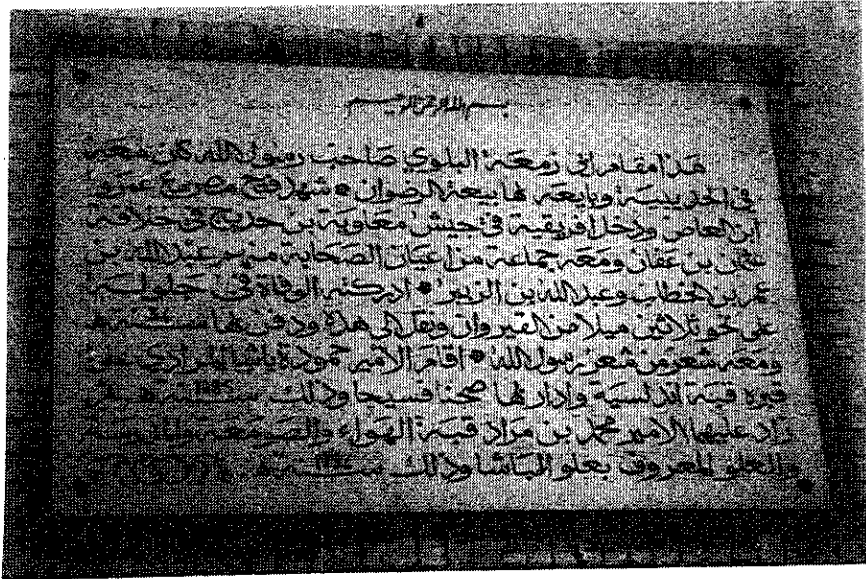 بسم الله الرحمن الرحيم
هذا مقام ابي زمعة البلوي صاحب رسول الله كان معه
في الحديبية وبايعه بها بيعة الرضوان * شهد فتح مصر مع عمرو
ابن العاص ودخل افريقية في جيش معاوية بن حديج في خلافة
عثمان بن عفان ومعه جماعة من اعيان الصحابة منهم عبد الله بن
عمر بن الخطاب وعبد الله بن الزبير * ادركته الوفاة في جلولة
على نحو ثلاثين ميلا من القيروان ونقل الى هذه ودفن بها سنة هـ
ومعه شعر من شعر رسول الله * اقام الامير حمودة باشا المرادي على
قبره قبة اندلسية وادار لها صحنا فسيحا وذلك سنة هـ
زاد عليها الامير محمد بن مراد قبة الهواء والصومعة والمدرسة
والعلو المعروف بعلو الباشا وذلك سنة هـ